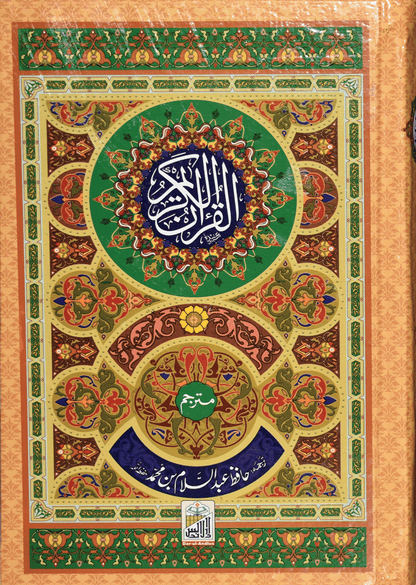 القرآن الكريم
مترجم
ترجمہ: حافظ عبدالسلام بن محمد
دارالاندلس
Dar-ul-Andlus